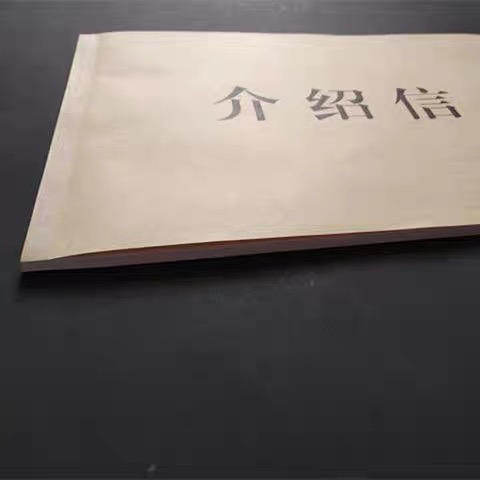 介绍信